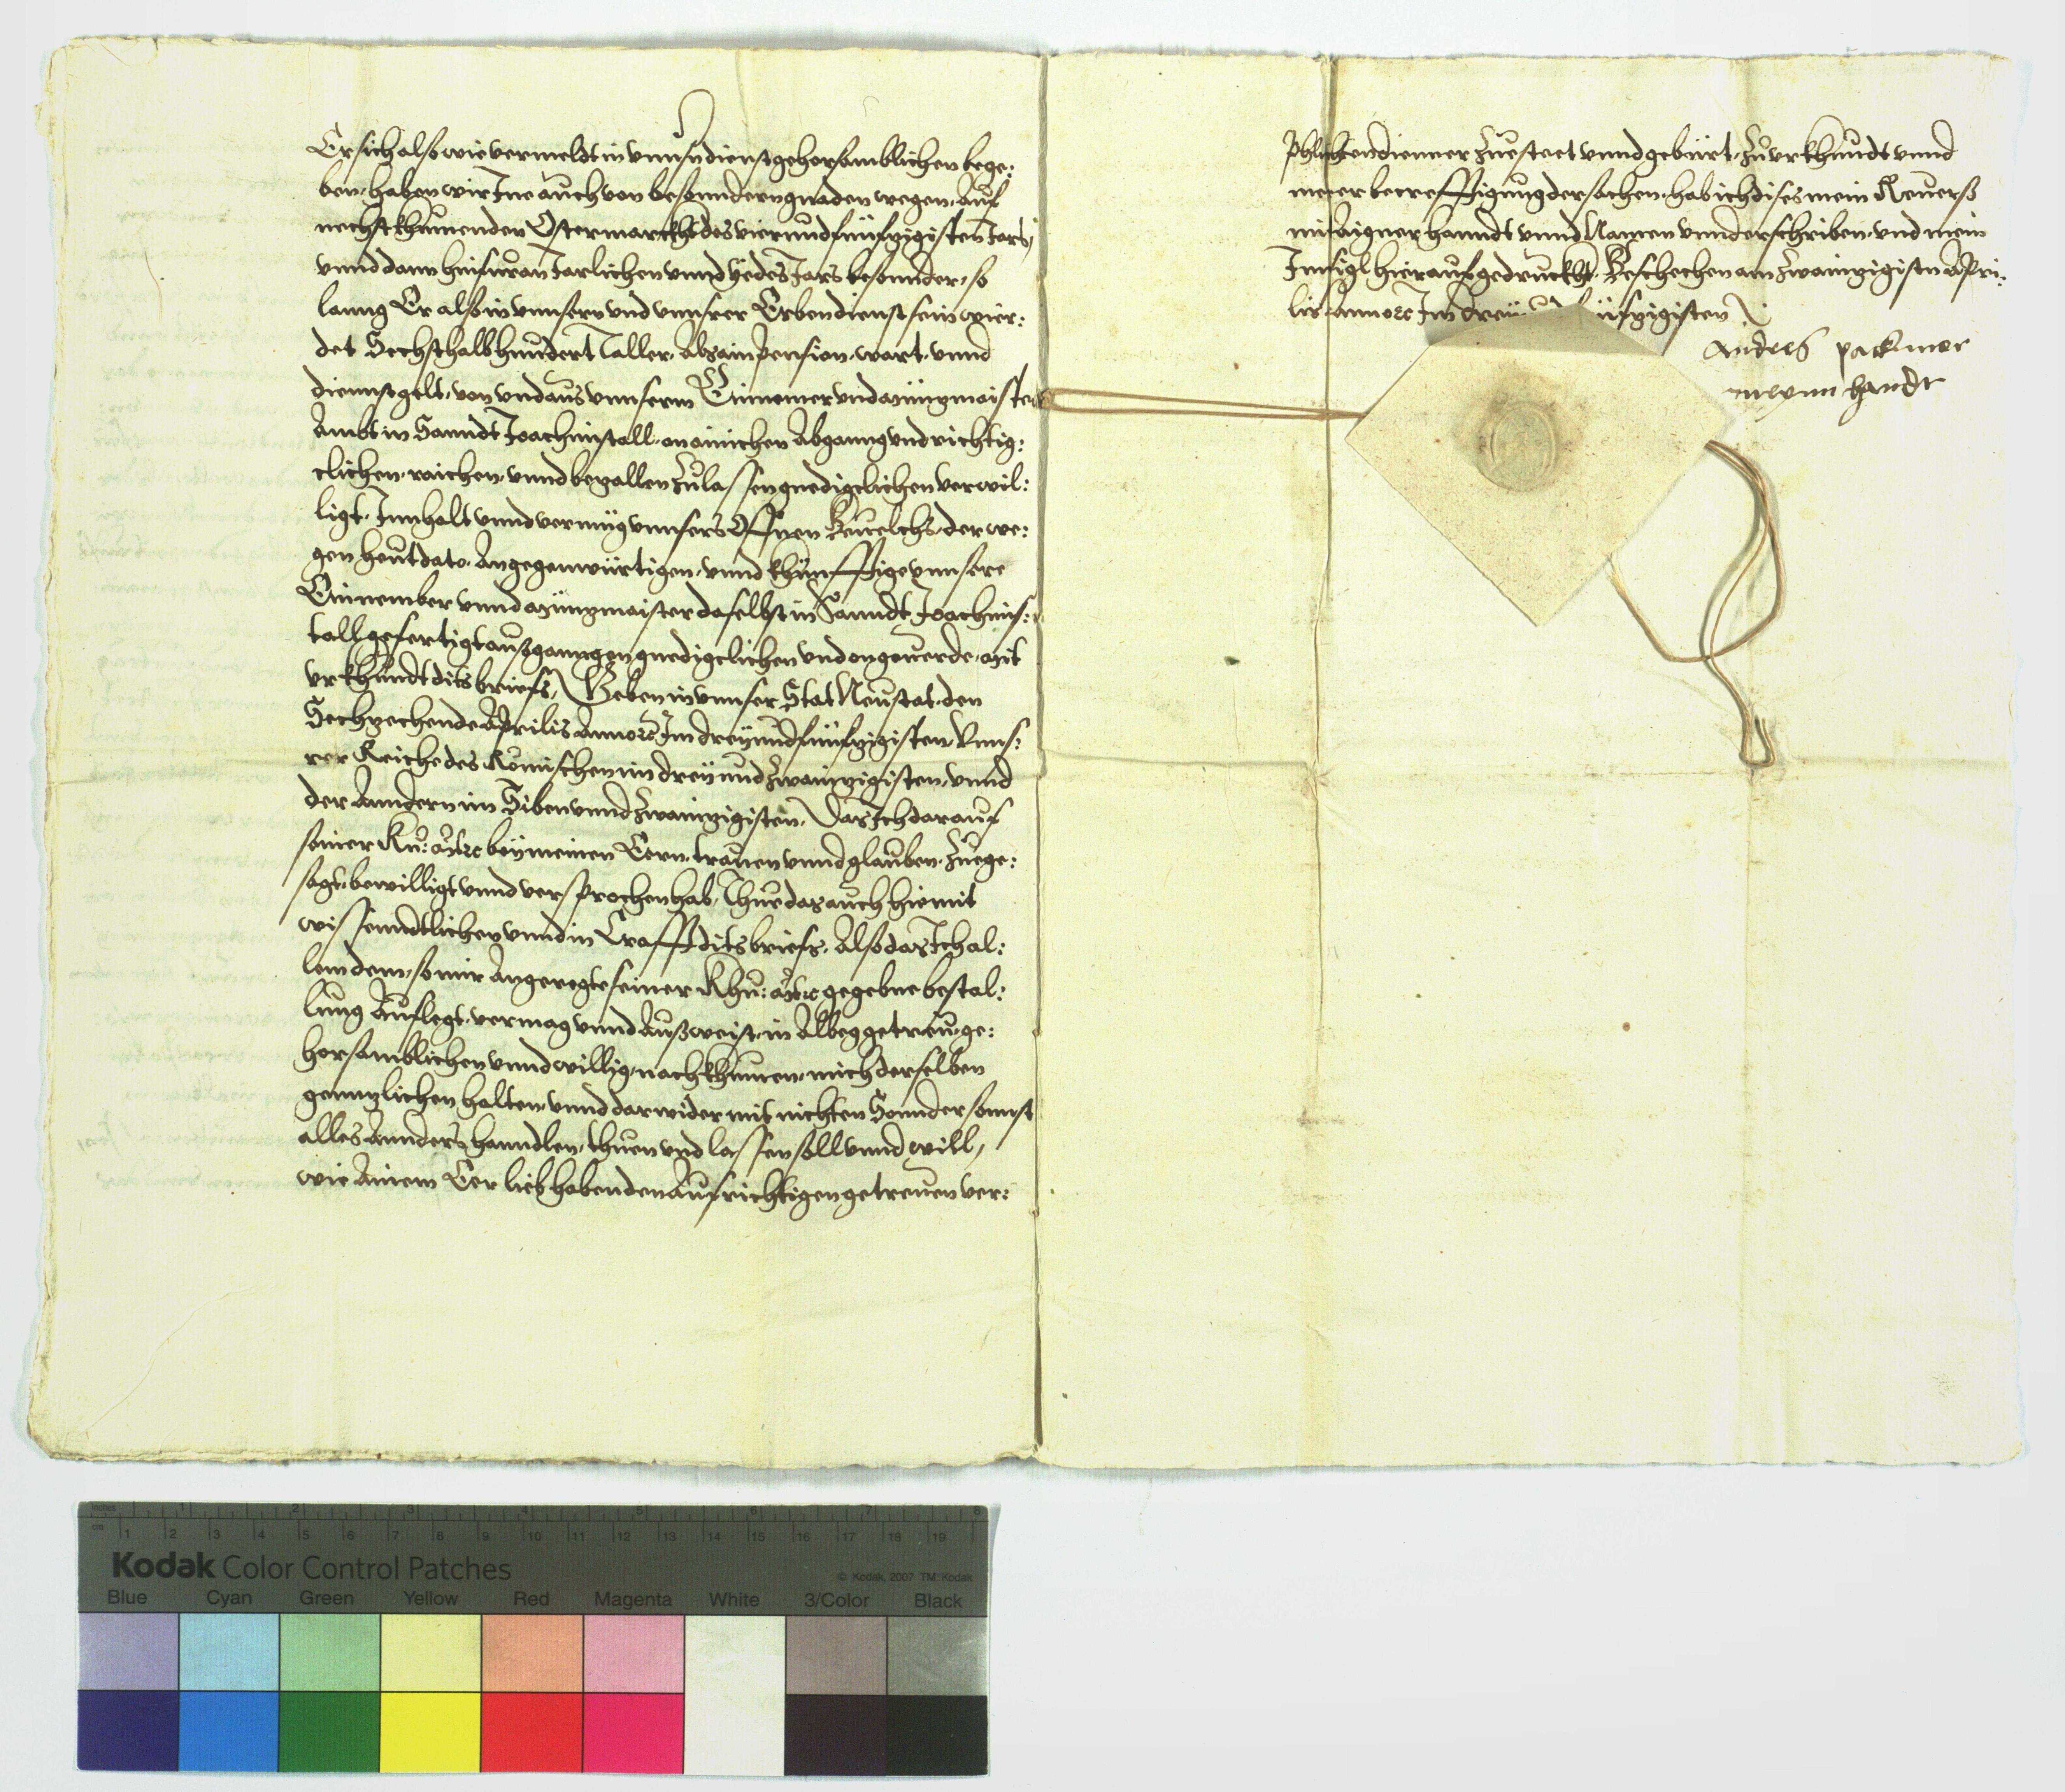 Er sich also wie vermeldt in unnsern dienst gehorsamblichen bege:
ben, haben wir Ine auch von besonndern gnaden wegen, Auf
nechstkhumenden Ostermarckht des vierundfünfzigisten Jars,
unnd dann hinfüran Jarlichen unnd yedes Jars besonnder, so
lanng Er also in unnsern und unnsrer Erben dienst sein wier:
det Sechsthalbhundert Taller, Als ain pension, wart, unnd
diennstgelt, von und aus unnserm Einnemer und Münzmaister
Ambt in Sanndt Joachimstall, on ainichen Abganng und richtig:
clichen, raichen, unnd bezallen zulassen gnedigelichen verwil:
ligt, Innhalt unnd vermüg unnsers Offnen Bevelchs, derwe:
gen heut dato, An gegenwürtigen, unnd khünfftige unnsere
Einnember unnd Münzmaister daselbst in Sanndt Joachims:
tall gefertigt ausganngen gnedigelichen und ongeuerde, Mit
urkhundt dits briefs, Geben in unnser Stat Neustat, den
Sechzechende Aprilis Anno etc Im dreyundfünfzigisten, Unns:
rer Reiche des Römischen im dreyundzwainzigisten, unnd
der Anndern im Sibenunndzwainzigisten, Das Ich darauf
seiner Kü: Mt etc bey meinen Eern, trauen unnd glauben, zuege:
sagt, bewilligt unnd versprochen hab, Thue das auch hiemit
wissenndtlichen unnd in Crafft dits briefs, Also das Ich al:
lem dem, so mir Angeregte seiner Khü: Mt etc gegebne bestal:
lung Auflegt, vermag unnd Ausweist, in Albeg getreu, ge:
horsamblichen unnd willig, nachkhumen, mich derselben
gennzlichen halten, unnd darwider mit nichten Sonnder sonnst
alles Annders hanndlen, thuen und lassen soll unnd will,
wie Ainem Eer liebhabenden Aufrichtigen getreuen ver:
phlichten diennner zuesteet unnd gebürt, Zu urkhundt unnd
merer becrefftigung der sachen, hab ich dises mein Reuerss
mit Aigner hanndt unnd Namen unnderschriben, und mein
Innsigl hierauf gedruckht, Beschechen am zwainzigistn Apri:
lis Anno etc Im drey fünfzigisten
Anders packmer
meynn handt
inches 1 2 3 4 5 6 7 8
cm 1 2 3 4 5 6 7 8 9 10 11 12 13 14 15 16 17 18 19
Kodak Color Control Patches
© Kodak, 2007 TM: Kodak
Blue Cyan Green Yellow Red Magenta White 3/Color Black